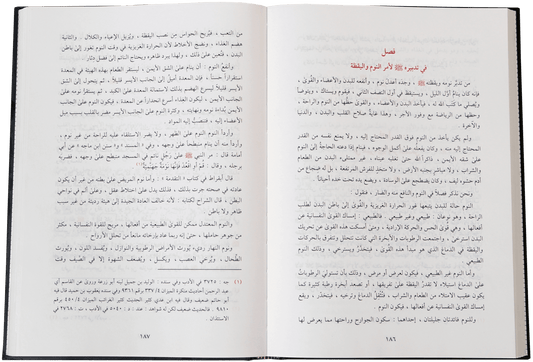 فصل
في تدبيره ﷺ لأمر النوم واليقظة
من تدبر نومه ويقظته ﷺ، وجده أعدل نوم، وأنفعه للبدن والأعضاء والقوى،
فإنه كان ينام أول الليل، ويستيقظ في أول النصف الثاني، فيقوم ويستاك، ويتوضأ
ويصلي ما كتب الله له، فيأخذ البدن والأعضاء، والقوى حظها من النوم والراحة،
وحظها من الرياضة مع وفور الأجر، وهذا غاية صلاح القلب والبدن، والدنيا
والآخرة.
ولم يكن يأخذ من النوم فوق القدر المحتاج إليه، ولا يمنع نفسه من القدر
المحتاج إليه منه، وكان يفعله على أكمل الوجوه، فينام إذا دعته الحاجة إلى النوم
على شقه الأيمن، ذاكراً الله حتى تغلبه عيناه، غير ممتلىء البدن من الطعام
والشراب، ولا مباشر بجنبه الأرض، ولا متخذ للفرش المرتفعة، بل له ضجاع من
أدم حشوه ليف، وكان يضطجع على الوسادة، ويضع يده تحت خده أحياناً.
ونحن نذكر فصلاً في النوم والنافع منه والضار، فنقول:
النوم حالة للبدن يتبعها غور الحرارة الغريزية والقوى إلى باطن البدن لطلب
الراحة، وهو نوعان: طبيعي وغير طبيعي. فالطبيعي: إمساك القوى النفسانية عن
أفعالها، وهي قوى الحس والحركة الإرادية، ومتى أمسكت هذه القوى عن تحريك
البدن استرخى، واجتمعت الرطوبات والأبخرة التي كانت تتحلل وتتفرق بالحركات
واليقظة في الدماغ الذي هو مبدأ هذه القوى، فيتخدر ويسترخي، وذلك النوم
الطبيعي.
وأما النوم غير الطبيعي، فيكون لعرض أو مرض، وذلك بأن تستولي الرطوبات
على الدماغ استيلاء لا تقدر اليقظة على تفريقها، أو تصعد أبخرة رطبة كثيرة كما
يكون عقيب الامتلاء من الطعام والشراب، فتثقل الدماغ وترخيه، فيتخدر، ويقع
إمساك القوى النفسانية عن أفعالها، فيكون النوم.
وللنوم فائدتان جليلتان، إحداهما: سكون الجوارح وراحتها مما يعرض لها
١٨٦
من التعب، فيريح الحواس من نصب اليقظة، ويزيل الإعياء والكلال. والثانية
هضم الغذاء، ونضج الأخلاط لأن الحرارة الغريزية في وقت النوم تغور إلى باطن
البدن، فتعين على ذلك، ولهذا يبرد ظاهره ويحتاج النائم إلى فضل دثار.
وأنفع النوم: أن ينام على الشق الأيمن، ليستقر الطعام بهذه الهيئة في المعدة
استقراراً حسناً، فإن المعدة أميل إلى الجانب الأيسر قليلاً، ثم يتحول إلى الشق
الأيسر قليلاً ليسرع الهضم بذلك لاستمالة المعدة على الكبد، ثم يستقر نومه على
الجانب الأيمن، ليكون الغذاء أسرع انحداراً عن المعدة، فيكون النوم على الجانب
الأيمن بداءة نومه ونهايته، وكثرة النوم على الجانب الأيسر مضر بالقلب بسبب ميل
الأعضاء إليه، فتنصب إليه المواد.
وأردأ النوم النوم على الظهر، ولا يضر الاستلقاء عليه للراحة من غير نوم،
وأردأ منه أن ينام منبطحاً على وجهه، وفي «المسند» و«سنن ابن ماجه» عن أبي
أمامة قال: مر النبي ﷺ على رجل نائم في المسجد منبطح على وجهه، فضربه
برجله، وقال: «قم أو اقعد فإنها نومة جهنمية» (١)
قال أبقراط في كتاب «التقدمة»: وأما نوم المريض على بطنه من غير أن يكون
عادته في صحته جرت بذلك، فذلك يدل على اختلاط عقل، وعلى ألم في نواحي
البطن، قال الشراح لكتابه: لأنه خالف العادة الجيدة إلى هيئة رديئة من غير سبب
ظاهر ولا باطن.
والنوم المعتدل ممكن للقوى الطبيعية من أفعالها، مريح للقوة النفسانية، مكثر
من جوهر حاملها، حتى إنه ربما عاد بإرخائه مانعاً من تحلل الأرواح.
ونوم النهار رديء يورث الأمراض الرطوبية والنوازل، ويفسد اللون، ويورث
الطحال، ويرخي العصب، ويكسل، ويضعف الشهوة إلا في الصيف وقت
١٨٧